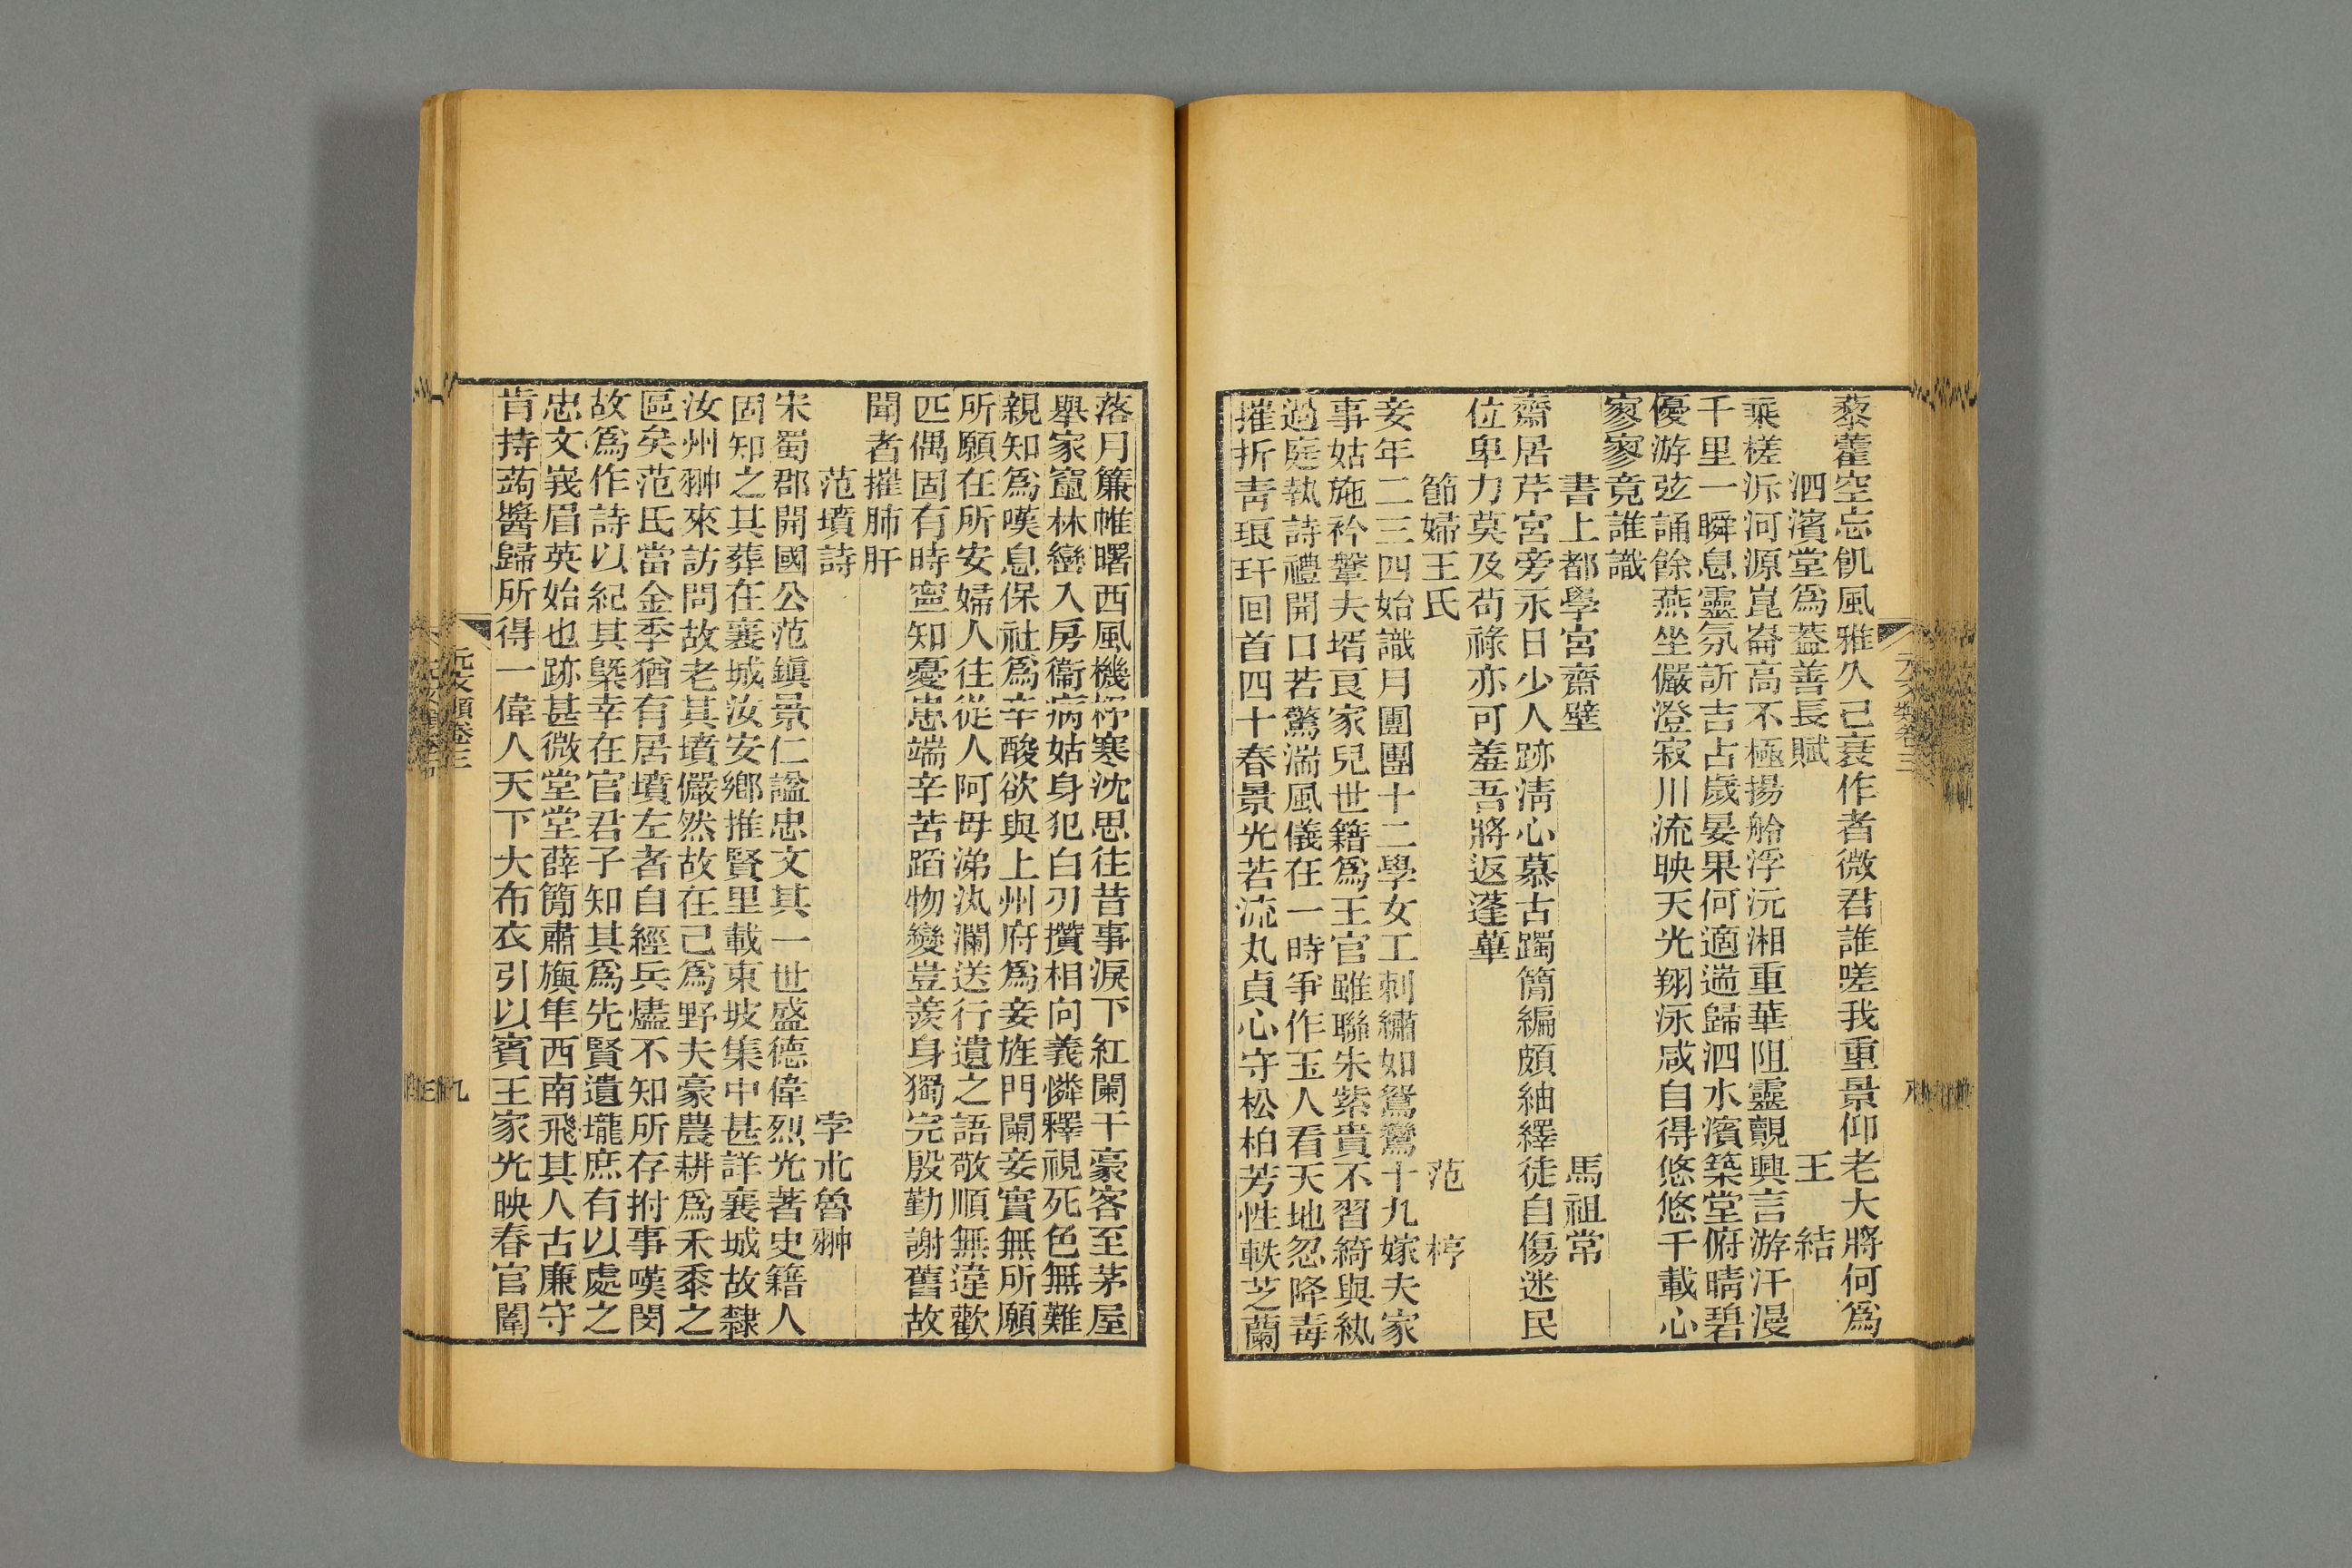 藜藿空忘飢風雅久已衰作者微君誰嗟我重景仰老大將何爲
泗濱堂爲蓋善長賦 王 結
乘槎泝河源崑崙高不極揚舲浮沅湘重華阻靈覿興言游汗漫
千里一瞬息靈氛訢吉占歲晏果何適遄歸泗水濱築堂俯晴碧
優游弦誦餘燕坐儼澄寂川流映天光翔泳咸自得悠悠千載心
寥寥竟誰識
書上都學宮齋壁 馬祖常
齋居芹宮旁永日少人跡淸心慕古躅簡編頗紬繹徒自傷迷民
位卑力莫及苟祿亦可羞吾將返蓬蓽
節婦王氏 范 梈
妾年二三四始識月團團十二學女工刺繡如鴛鴦十九嫁夫家
事姑施衿鞶夫壻良家兒世籍爲王官雖聯朱紫貴不習綺與紈
過庭執詩禮開口若驚湍風儀在一時爭作玉人看天地忽降毒
摧折靑琅玕回首四十春景光若流丸貞心守松柏芳性軼芝蘭
落月簾帷曙西風機杼寒沈思往昔事淚下紅闌干豪客至茅屋
舉家竄林巒入房衞病姑身犯白刃攢相向義憐釋視死色無難
親知爲嘆息保社爲辛酸欲與上州府爲妾旌門闌妾實無所願
所願在所安婦人往從人阿母涕汍瀾送行遺之語敬順無違歡
匹偶固有時寧知憂患端辛苦蹈物變豈羨身獨完殷勤謝舊故
聞者摧肺肝
范墳詩 孛朮魯翀
宋蜀郡開國公范鎭景仁謚忠文其一世盛德偉烈光著史籍人
固知之其葬在襄城汝安鄕推賢里載東坡集中甚詳襄城故隸
汝州翀來訪問故老其墳儼然故在已爲野夫豪農耕爲禾黍之
區矣范氏當金季猶有居墳左者自經兵燼不知所存拊事嘆閔
故爲作詩以紀其槩幸在官君子知其爲先賢遺壠庶有以處之
忠文峩眉英始也跡甚微堂堂薛簡肅旟隼西南飛其人古廉守
肯持蒟醬歸所得一偉人天下大布衣引以賓王家光映春官闈
元文類卷三
九